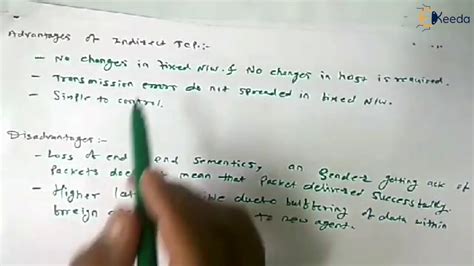 Keeda
Advantages of Indirect TCP:-
- No changes in fixed N/w. & No changes in host is required.
- Transmission errors do not spreaded in fixed N/w.
- Simple to control.
Disadvantages:-
- Loss of end end semantics, an sender getting ack of
packets doe mean that packet delivered successfully.
- Higher lat due to buffering of data within
foreign to new agent.